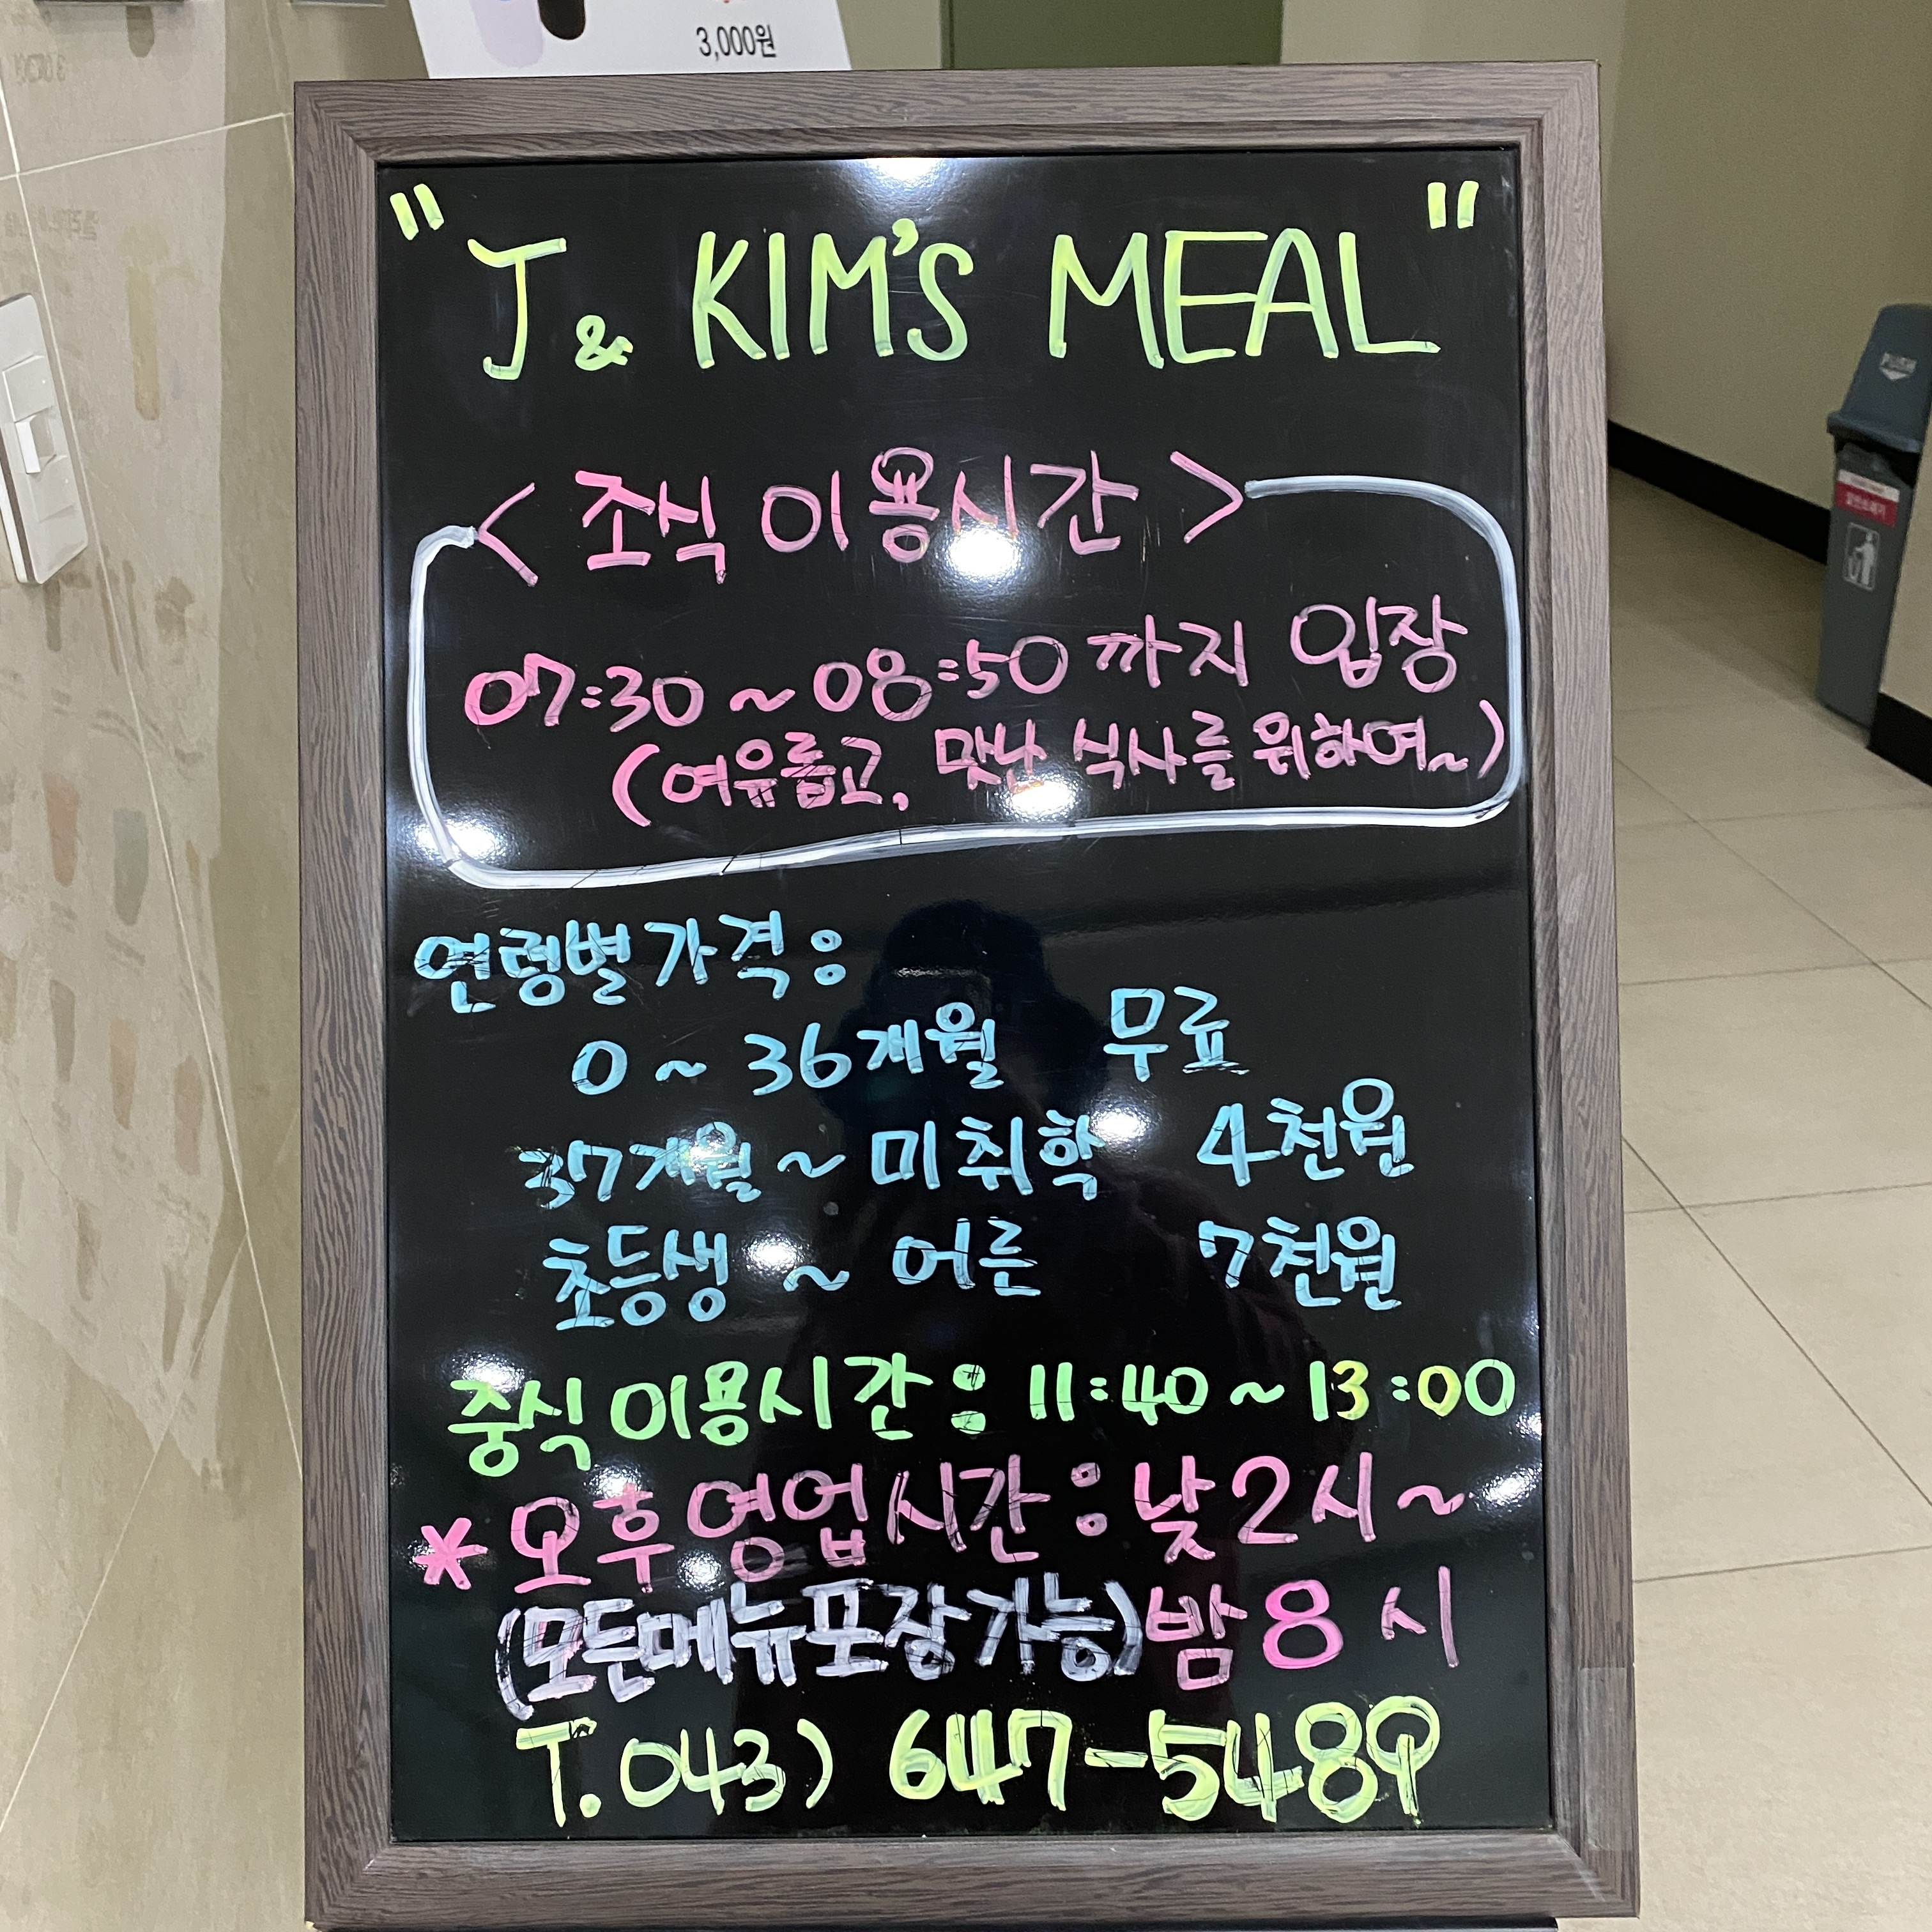 3,000원
"J & KIM'S MEAL"
< 조식 이용시간 >
07:30 ~ 08:50 까지 입장
(여유롭고, 맛난 식사를 위하여~)
연령별 가격 :
0 ~ 36개월 무료
37개월 ~ 미취학 4천원
초등생 ~ 어른 7천원
중식 이용시간 : 11:40 ~ 13:00
* 오후 영업시간 : 낮 2시 ~
(모든메뉴포장가능) 밤 8시
T. 043) 647-5489